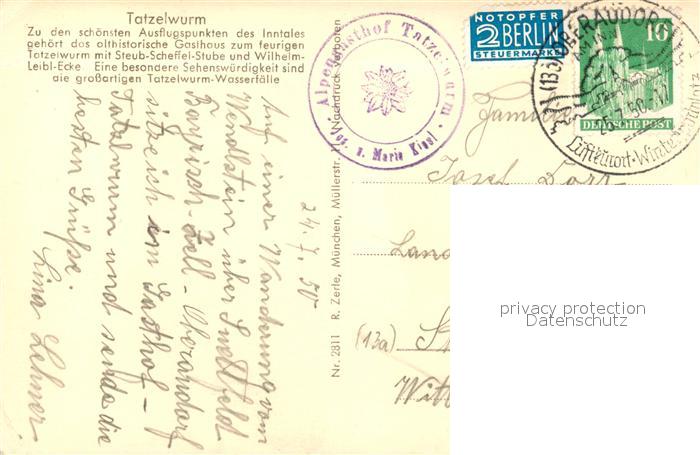 Tatzelwurm
Zu den schönsten Ausflugspunkten des Inntales
gehört das althistorische Gasthaus zum feurigen
Tatzelwurm mit Steub-Scheffel-Stube und Wilhelm-
Leibl-Ecke Eine besondere Sehenswürdigkeit sind
die großartigen Tatzelwurm-Wasserfälle
24.7.50
Auf einer Wanderung vom
Wendlstein über
Bayrisch-Zell - Oberaudorf
sitze ich im Gasthof -
Tatzelwurm und sende die
besten Grüße.
Lina Lehner
Nr. 2811 R. Zerle, München, Müllerstr. Nachdruck verboten
Alpengasthof Tatzelwurm
Bes. u. Maria Kiesl
NOTOPFER
2 BERLIN
STEUERMARKE
10
DEUTSCHE POST
(13b) OBERAUDORF
AM INN
5.7.50
Luftkurort-Wintersportplatz
Familie
Josef
Land
(13a)
privacy protection
Datenschutz